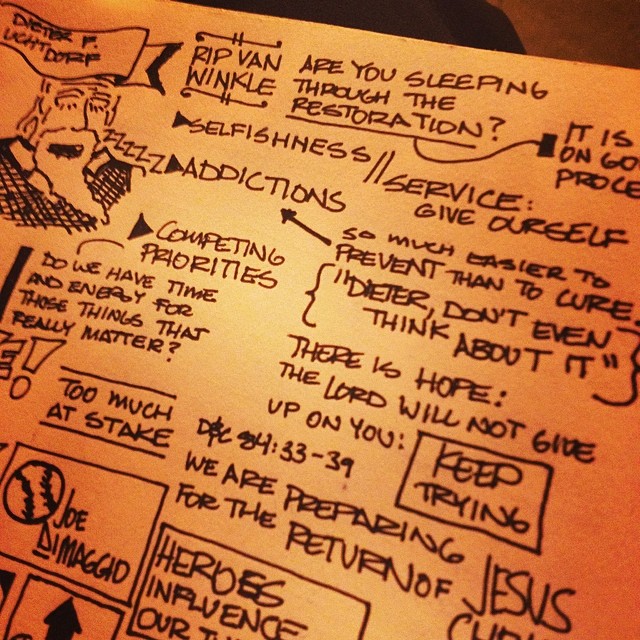 DIETER F.
UCHTDORF
RIP VAN
WINKLE
ARE YOU SLEEPING
THROUGH THE
RESTORATION?
IT IS
ON GO
PROCE
ZZZZZ
SELFISHNESS // SERVICE:
GIVE OURSELF
ADDICTIONS
SO MUCH EASIER TO
PREVENT THAN TO CURE
"DIETER, DON'T EVEN
THINK ABOUT IT"
COMPETING
PRIORITIES
DO WE HAVE TIME
AND ENERGY FOR
THOSE THINGS THAT
REALLY MATTER?
THERE IS HOPE:
THE LORD WILL NOT GIVE
UP ON YOU:
KEEP
TRYING
TOO MUCH
AT STAKE
D&C 84:33-39
WE ARE PREPARING
FOR THE RETURN OF JESUS
JOE
DIMAGGIO
HEROES
INFLUENCE
OUR